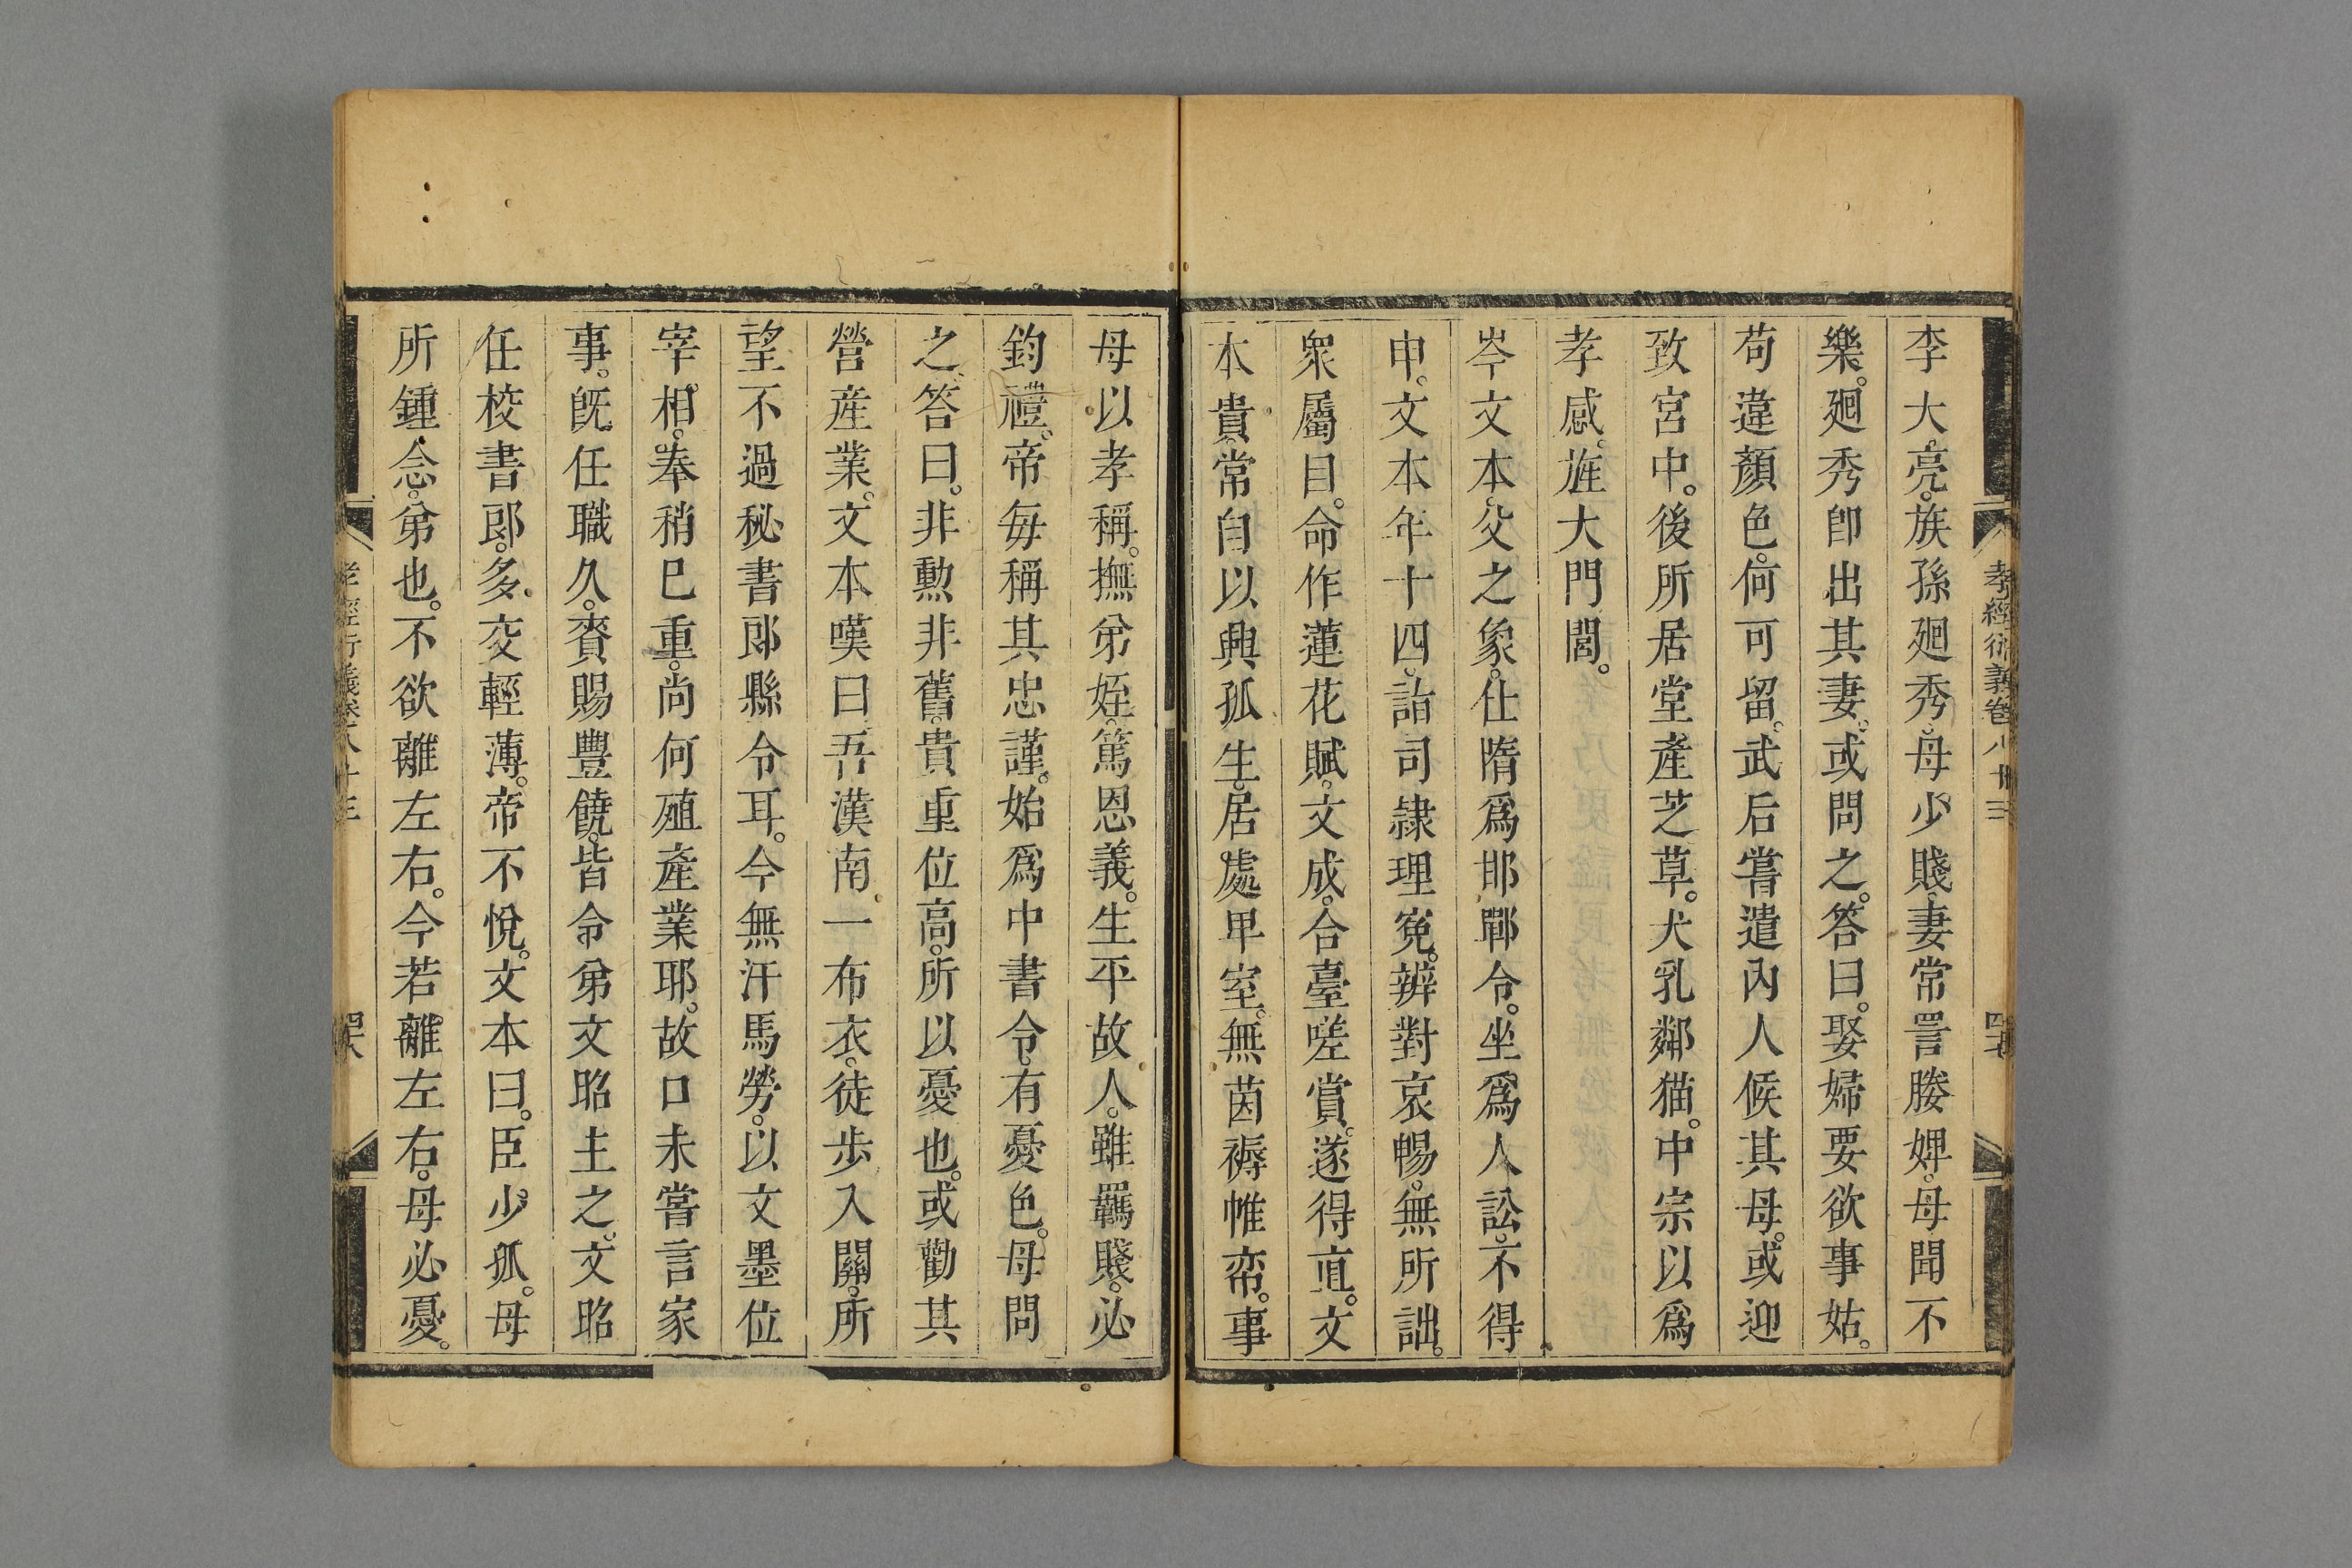 孝經衍義卷八十三
四十七
李大亮。族孫廻秀。母少賤。妻常詈媵婢。母聞不
樂。廻秀卽出其妻。或問之。答曰。娶婦要欲事姑。
苟違顏色。何可留。武后嘗遣內人候其母。或迎
致宮中。後所居堂產芝草。犬乳鄰猫。中宗以爲
孝感。旌大門閭。
岑文本。父之象。仕隋爲邯鄲令。坐爲人訟。不得
申。文本年十四。詣司隸理寃。辨對哀暢。無所詘。
衆屬目。命作蓮花賦。文成。合臺嗟賞。遂得直。文
本貴。常自以興孤生。居處卑室。無茵褥帷帟。事
母以孝稱。撫弟姪。篤恩義。生平故人。雖羈賤。必
鈞禮。帝每稱其忠謹。始爲中書令。有憂色。母問
之。答曰。非勲非舊。貴重位高。所以憂也。或勸其
營產業。文本嘆曰吾漢南一布衣。徒步入關。所
望不過秘書郎縣令耳。今無汗馬勞。以文墨位
宰相。奉稍已重。尚何殖產業耶。故口未嘗言家
事。旣任職久。賚賜豐饒。皆令弟文昭主之。文昭
任校書郎。多交輕薄。帝不悅。文本曰。臣少孤。母
所鍾念。弟也。不欲離左右。今若離左右。母必憂。
孝經衍義卷八十三